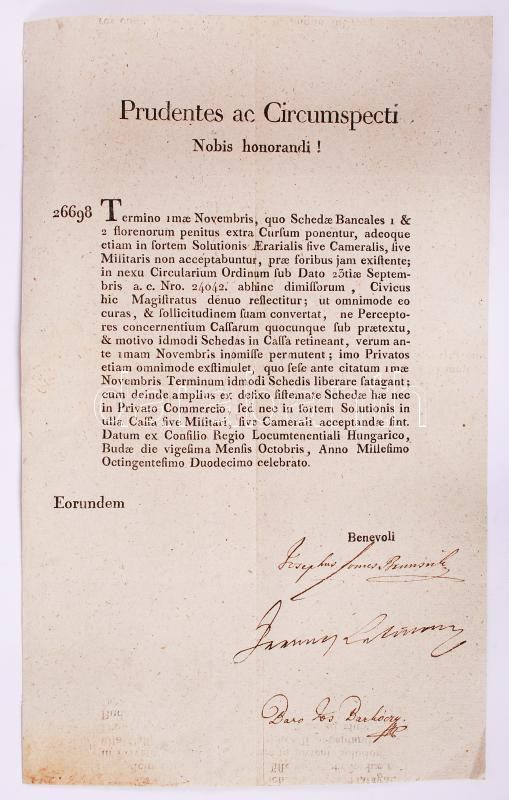 Prudentes ac Circumspecti
Nobis honorandi !
26698
Termino 1mæ Novembris, quo Schedæ Bancales 1 &
2 florenorum penitus extra Curſum ponentur, adeoque
etiam in ſortem Solutionis Ærarialis ſive Cameralis, ſive
Militaris non acceptabuntur, præ foribus jam exiſtente;
in nexu Circularium Ordinum ſub Dato 23tiæ Septem-
bris a. c. Nro. 24042. abhinc dimiſſorum, Civicus
hic Magiſtratus denuo reflectitur; ut omnimode eo
curas, & ſollicitudinem ſuam convertat, ne Percepto-
res concernentium Caſſarum quocunque ſub prætextu,
& motivo idmodi Schedas in Caſſa retineant, verum an-
te 1mam Novembris inomiſſe permutent; imo Privatos
etiam omnimode exſtimulet, quo ſeſe ante citatum 1mæ
Novembris Terminum idmodi Schedis liberare ſatagant;
cum deinde amplius ex defixo ſiſtemate Schedæ hæ nec
in Privato Commercio, ſed nec in ſortem Solutionis in
ulla Caſſa ſive Militari, ſive Camerali acceptandæ ſint.
Datum ex Conſilio Regio Locumtenentiali Hungarico,
Budæ die vigeſima Menſis Octobris, Anno Milleſimo
Octingenteſimo Duodecimo celebrato.
Eorundem
Benevoli
Josephus Comes Brunsvik
Baro Jos. Barkóczy